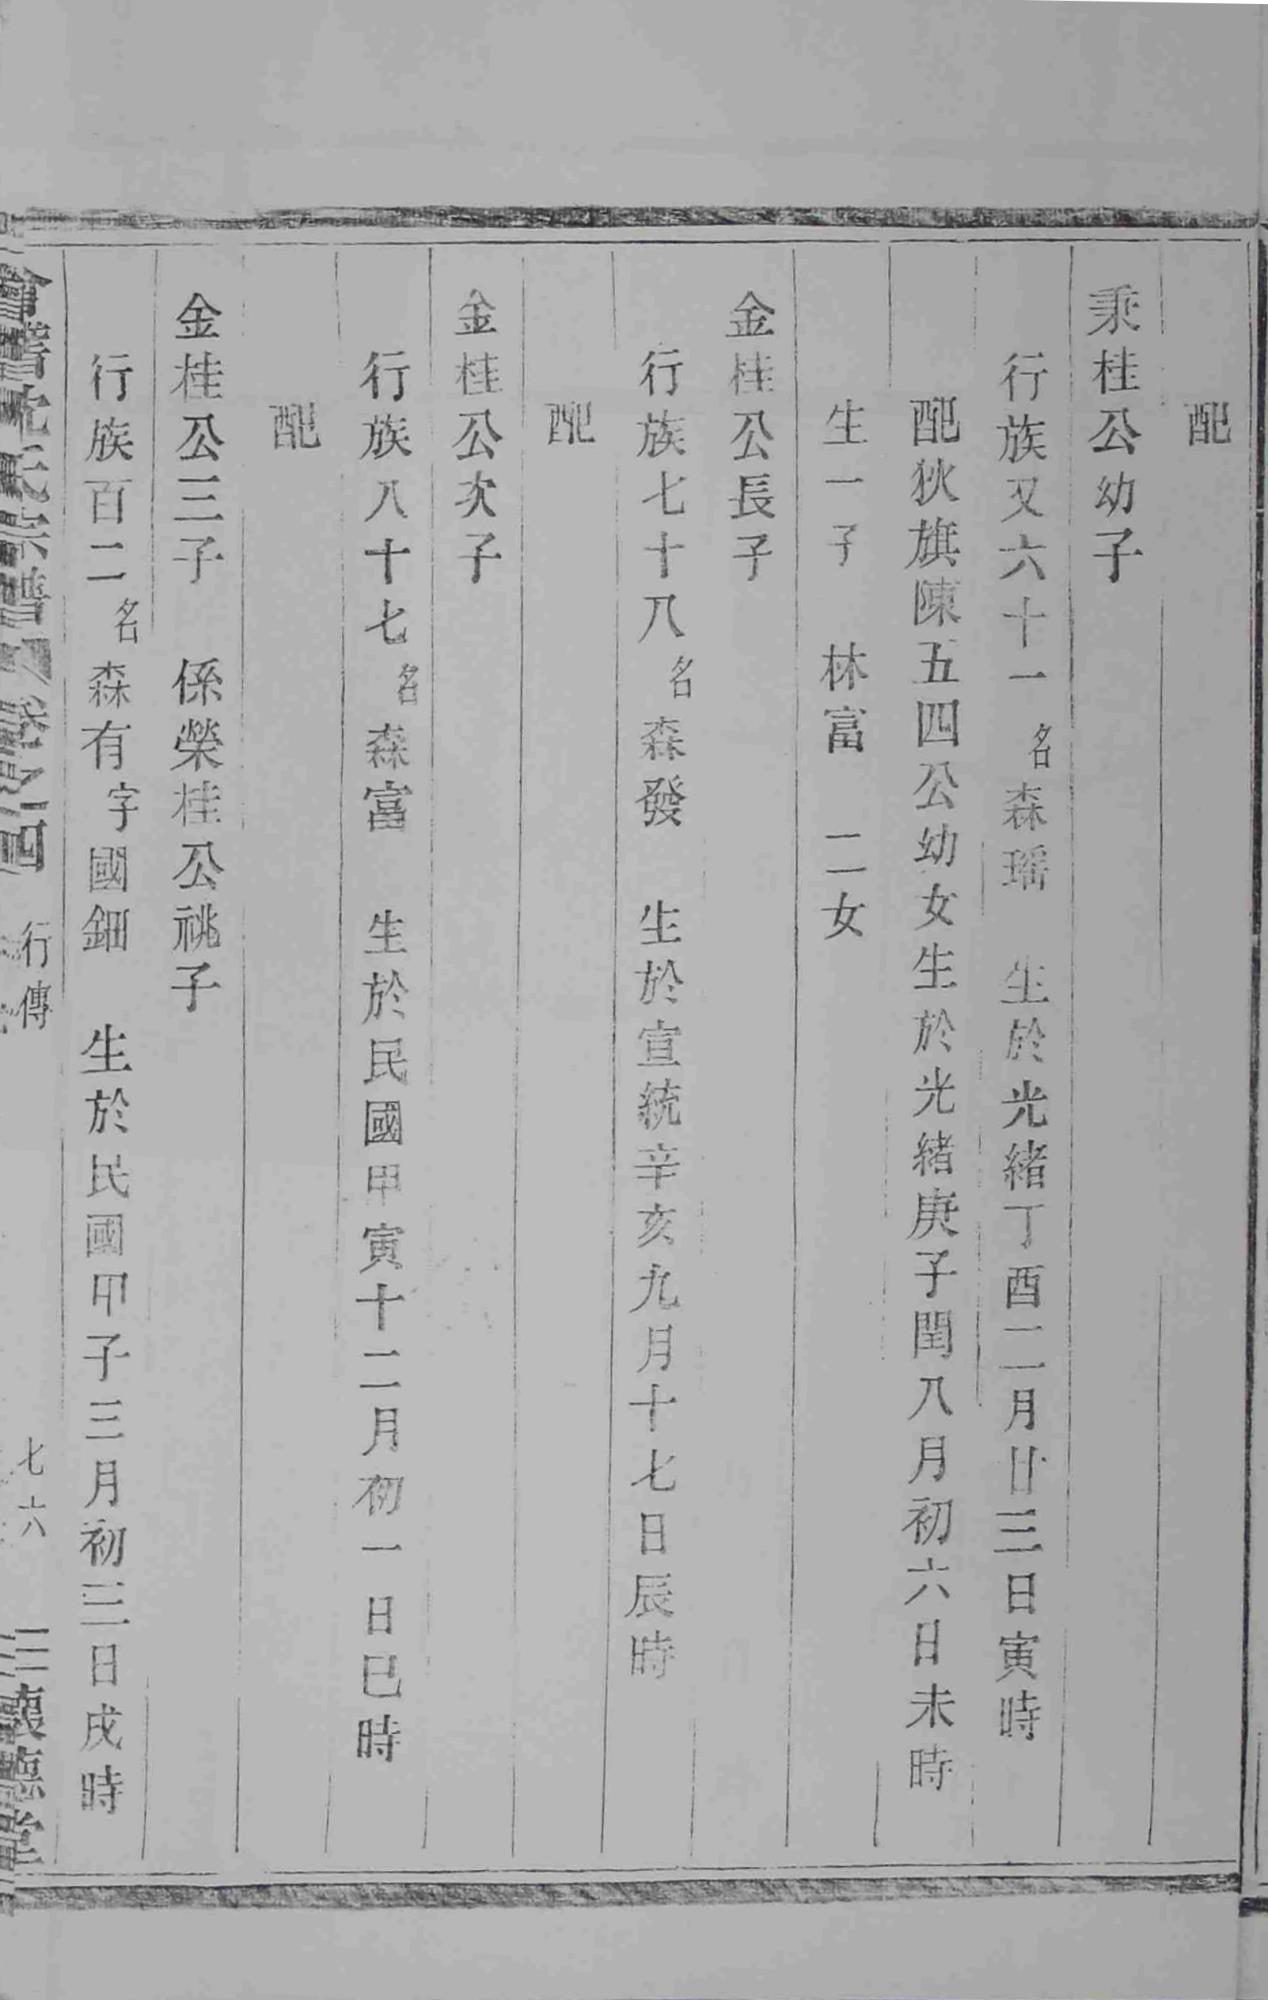 配
秉桂公幼子
行族又六十一名森瑤　生於光緒丁酉二月廿三日寅時
配狄旗陳五四公幼女生於光緒庚子閏八月初六日未時
生一子　林富　二女
金桂公長子
行族七十八名森發　生於宣統辛亥九月十七日辰時
配
金桂公次子
行族八十七名森富　生於民國甲寅十二月初一日巳時
配
金桂公三子　係榮桂公祧子
行族百二名森有字國鈿　生於民國甲子三月初三日戌時
會稽沈氏宗譜　卷之四　行傳　七六　懷德堂